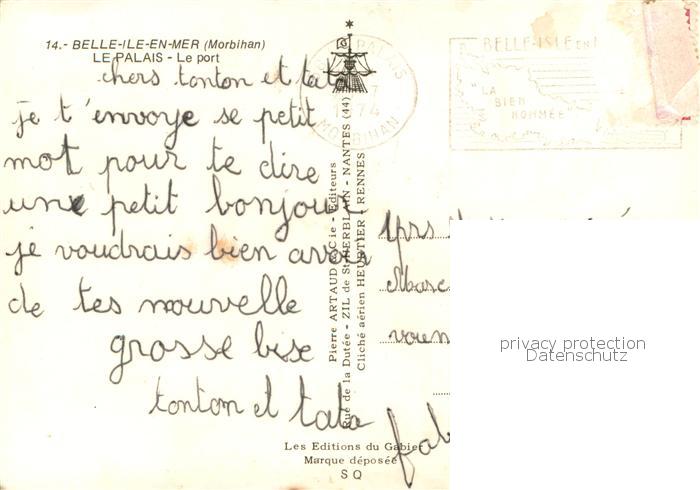 14.- BELLE-ILE-EN-MER (Morbihan)
LE PALAIS - Le port
chers tonton et tata
je t'envoye se petit
mot pour te dire
une petit bonjour
je voudrais bien avoir
de tes nouvelle
grosse bise
tonton et tata
Pierre ARTAUD & Cie - Editeurs
Rue de la Dutée - ZIL de St-HERBLAIN - NANTES (44)
Cliché aérien HEURTIER - RENNES
Les Editions du Gabier
Marque déposée
S Q
PALAIS
MORBIHAN
BELLE-ISLE EN
"LA
BIEN
NOMMÉE"
privacy protection
Datenschutz